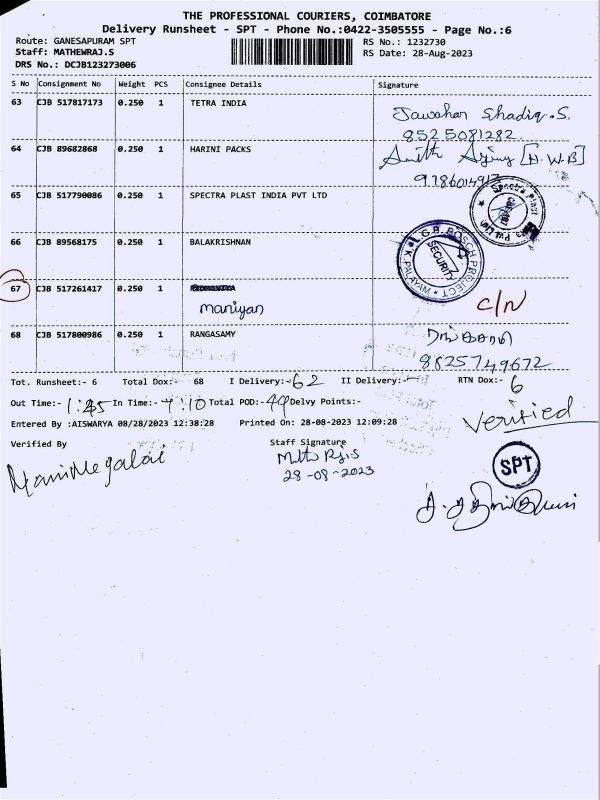 THE PROFESSIONAL COURIERS, COIMBATORE
Delivery Runsheet - SPT - Phone No.:0422-3505555 - Page No.:6
Route: GANESAPURAM SPT RS No.: 1232730
Staff: MATHEWRAJ.S RS Date: 28-Aug-2023
DRS No.: DCJB123273006
S No Consignment No Weight PCS Consignee Details Signature
63 CJB 517817173 0.250 1 TETRA INDIA Jawahar Shadiq.S.
8525081282
64 CJB 89682868 0.250 1 HARINI PACKS [H.W.B]
65 CJB 517790086 0.250 1 SPECTRA PLAST INDIA PVT LTD Spectra Plast
66 CJB 89568175 0.250 1 BALAKRISHNAN L.G.B. BOSCH PROJECT K.PALAYAM SECURITY
67 CJB 517261417 0.250 1
maniyan C/N
68 CJB 517800986 0.250 1 RANGASAMY
8825749672
Tot. Runsheet:- 6 Total Dox:- 68 I Delivery:-62 II Delivery:- RTN Dox:- 6
Out Time:- In Time:- 4.10 Total POD:- Delvy Points:-
Verified
Entered By :AISWARYA 08/28/2023 12:38:28 Printed On: 28-08-2023 12:09:28
Verified By Staff Signature
Manimegalai
28-08-2023
SPT